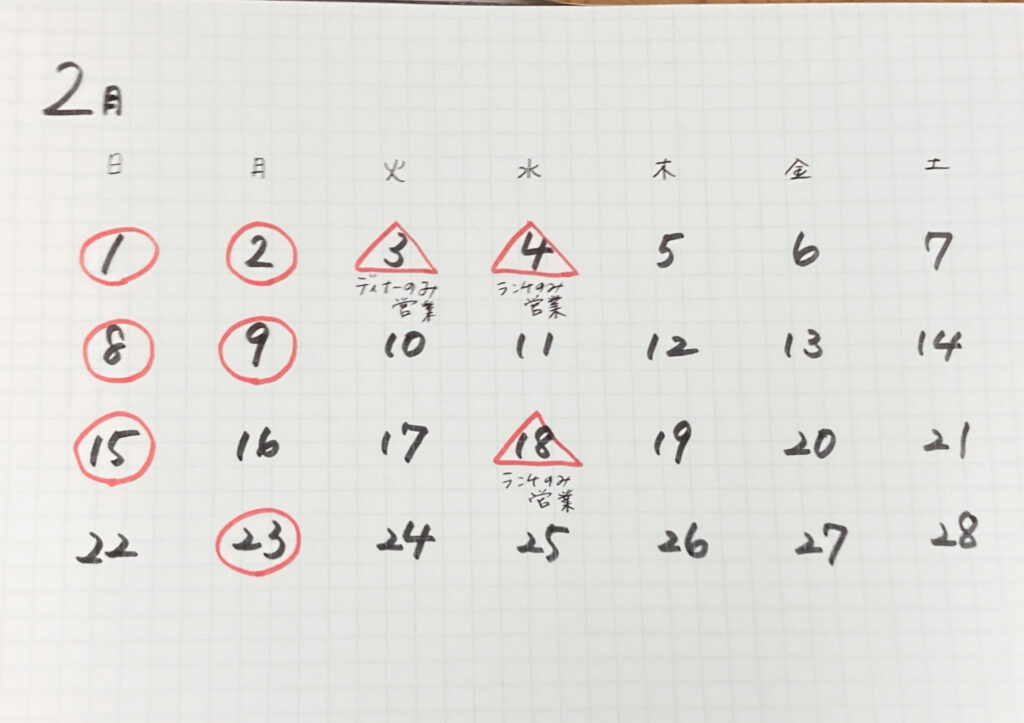 2月
日 月 火 水 木 金 土
1 2 3 4 5 6 7
ディナーのみ ランチのみ
営業 営業
8 9 10 11 12 13 14
15 16 17 18 19 20 21
ランチのみ
営業
22 23 24 25 26 27 28